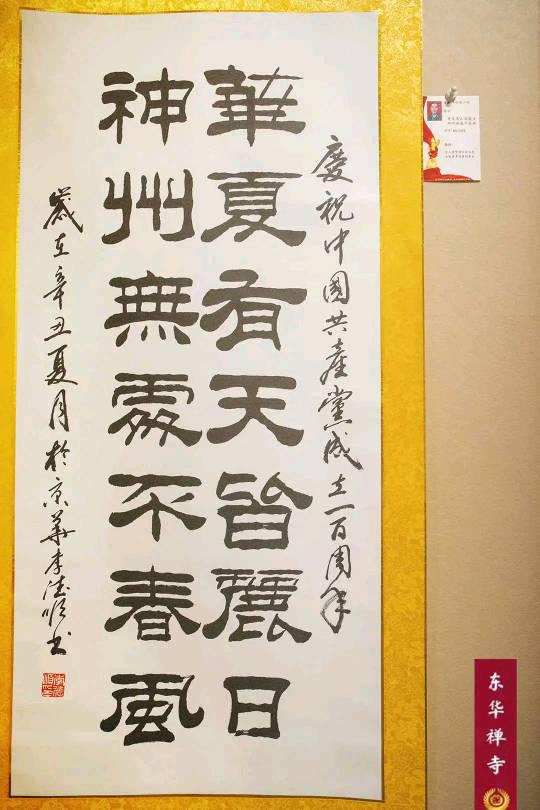 慶祝中國共産黨成立一百周年
華夏有天皆麗日
神州無處不春風
歲在辛丑夏月於京華李德順書
东华禅寺